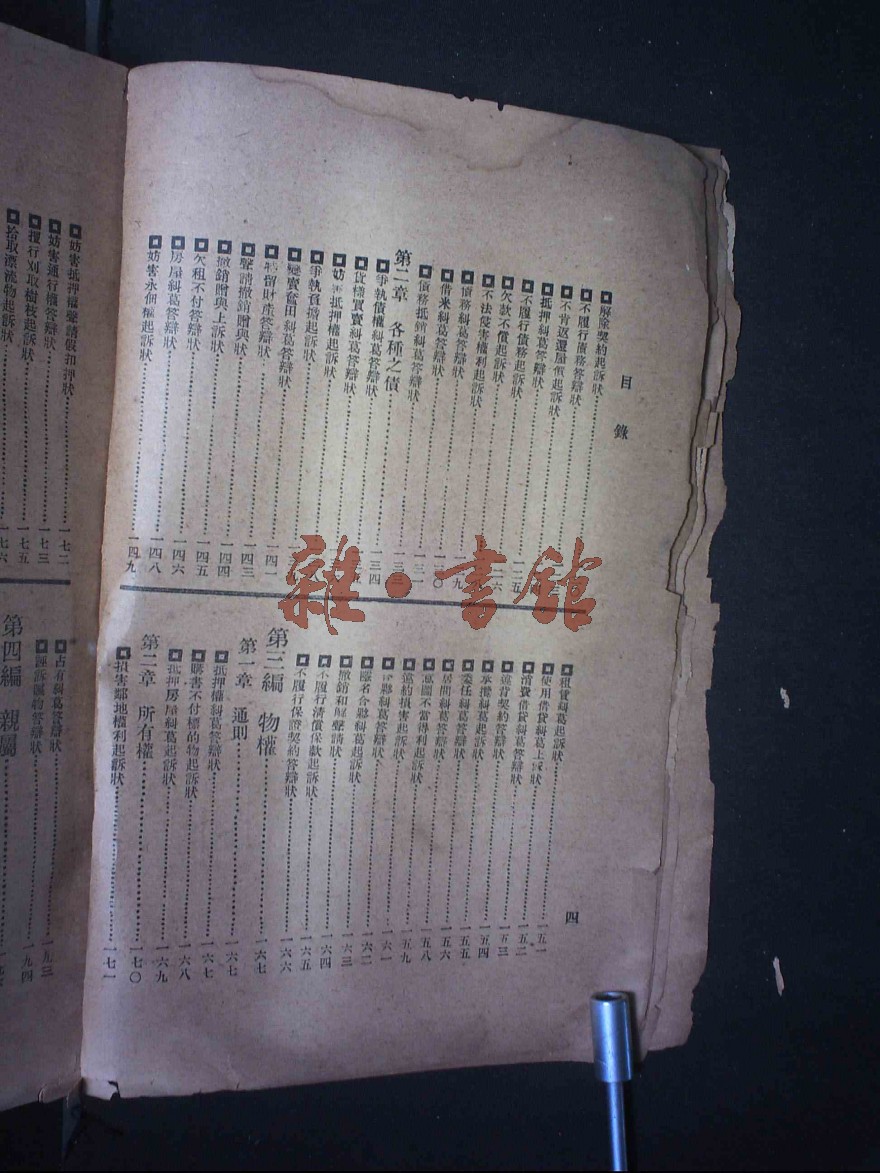 目錄
解除契約起訴狀
不履行債務答辯狀
不肯返還屋價起訴狀
抵押糾葛答辯狀
不履行債務起訴狀…一二五
欠款不償起訴狀
不法侵害權利起訴狀
債務糾葛答辯狀
借米糾葛答辯狀…一三〇
債務抵銷糾葛答辯狀…一三一
第二章 各種之債…一三三
爭執債權糾葛答辯狀…一三四
貨樣買賣糾葛答辯狀
妨害抵押權起訴狀
爭執負擔起訴狀
變賣奮田糾葛答辯狀
特留財產答辯狀…一四一
聲請撤銷贈與狀…一四三
撤銷贈與上訴狀…一四四
欠租不付答辯狀…一四五
房屋糾葛答辯狀…一四六
妨害永佃權起訴狀…一四八
一四九
租賃糾葛起訴狀…一五一
使用借貸糾葛上訴狀…一五二
消費借貸糾葛答辯狀…一五三
違背契約答辯狀…一五四
承攬糾葛起訴狀…一五五
委任糾葛答辯狀
居間糾葛起訴狀…一五六
意圖不當得利起訴狀…一五八
違約損害起訴狀…一五九
合夥糾葛答辯狀…一六一
隱名合夥糾葛起訴狀…一六二
撤銷和解聲請狀…一六三
不履行清償保款起訴狀…一六四
不履行保證契約答辯狀…一六五
一六六
第三編 物權…一六七
第一章 通則…一六七
抵押權糾葛答辯狀…一六七
購書不付標的物起訴狀…一六八
抵押房屋糾葛起訴狀…一六九
第二章 所有權…一七〇
損害鄰地權利起訴狀…一七一
四
妨害抵押權聲請假扣押狀…一七二
妨害通行權答辯狀…一七三
擅行刈取樹枝起訴狀…一七五
拾取漂流物起訴狀…一七六
占有糾葛答辯狀…一九三
誣訴匯約答辯狀…一九四
第四編 親屬
雜·書館